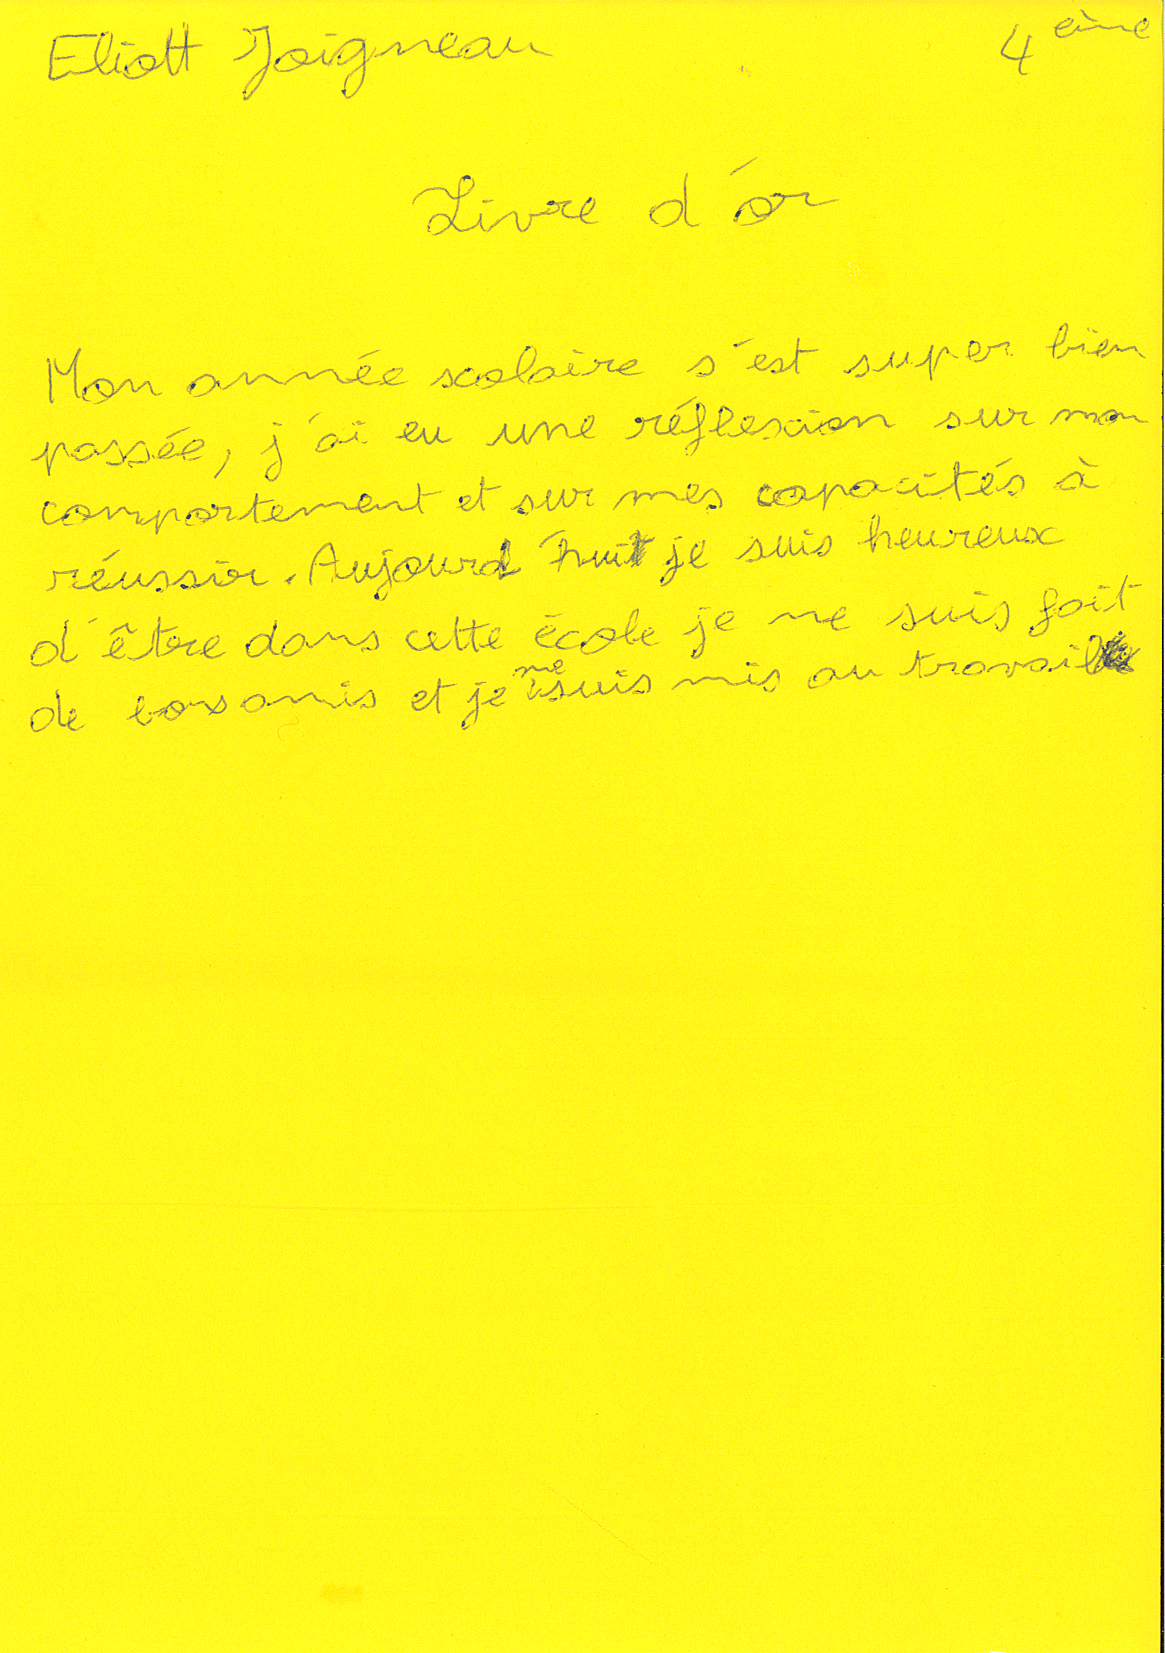 Eliott Joigneau 4 ème
Livre d'or
Mon année scolaire s'est super bien
passée, j'ai eu une réflexion sur mon
comportement et sur mes capacités à
réussir. Aujourd'hui je suis heureux
d'être dans cette école je ne suis fait
de bons amis et je me suis mis au travail